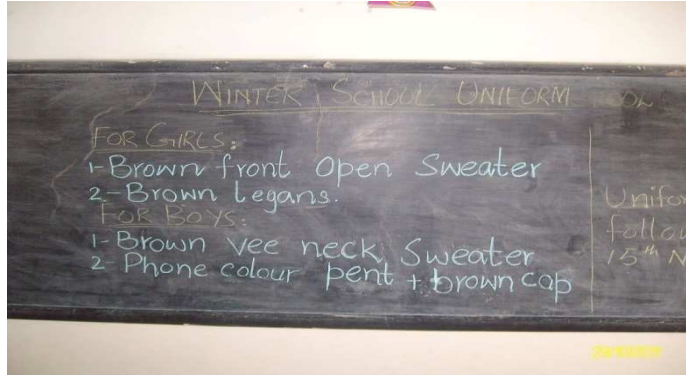 WINTER SCHOOL UNIFORM
FOR GIRLS:
1-Brown front Open Sweater
2-Brown legans.
FOR BOYS:
1-Brown vee neck Sweater
2-Phone colour pent + brown cap
Unifor
follow
15th N